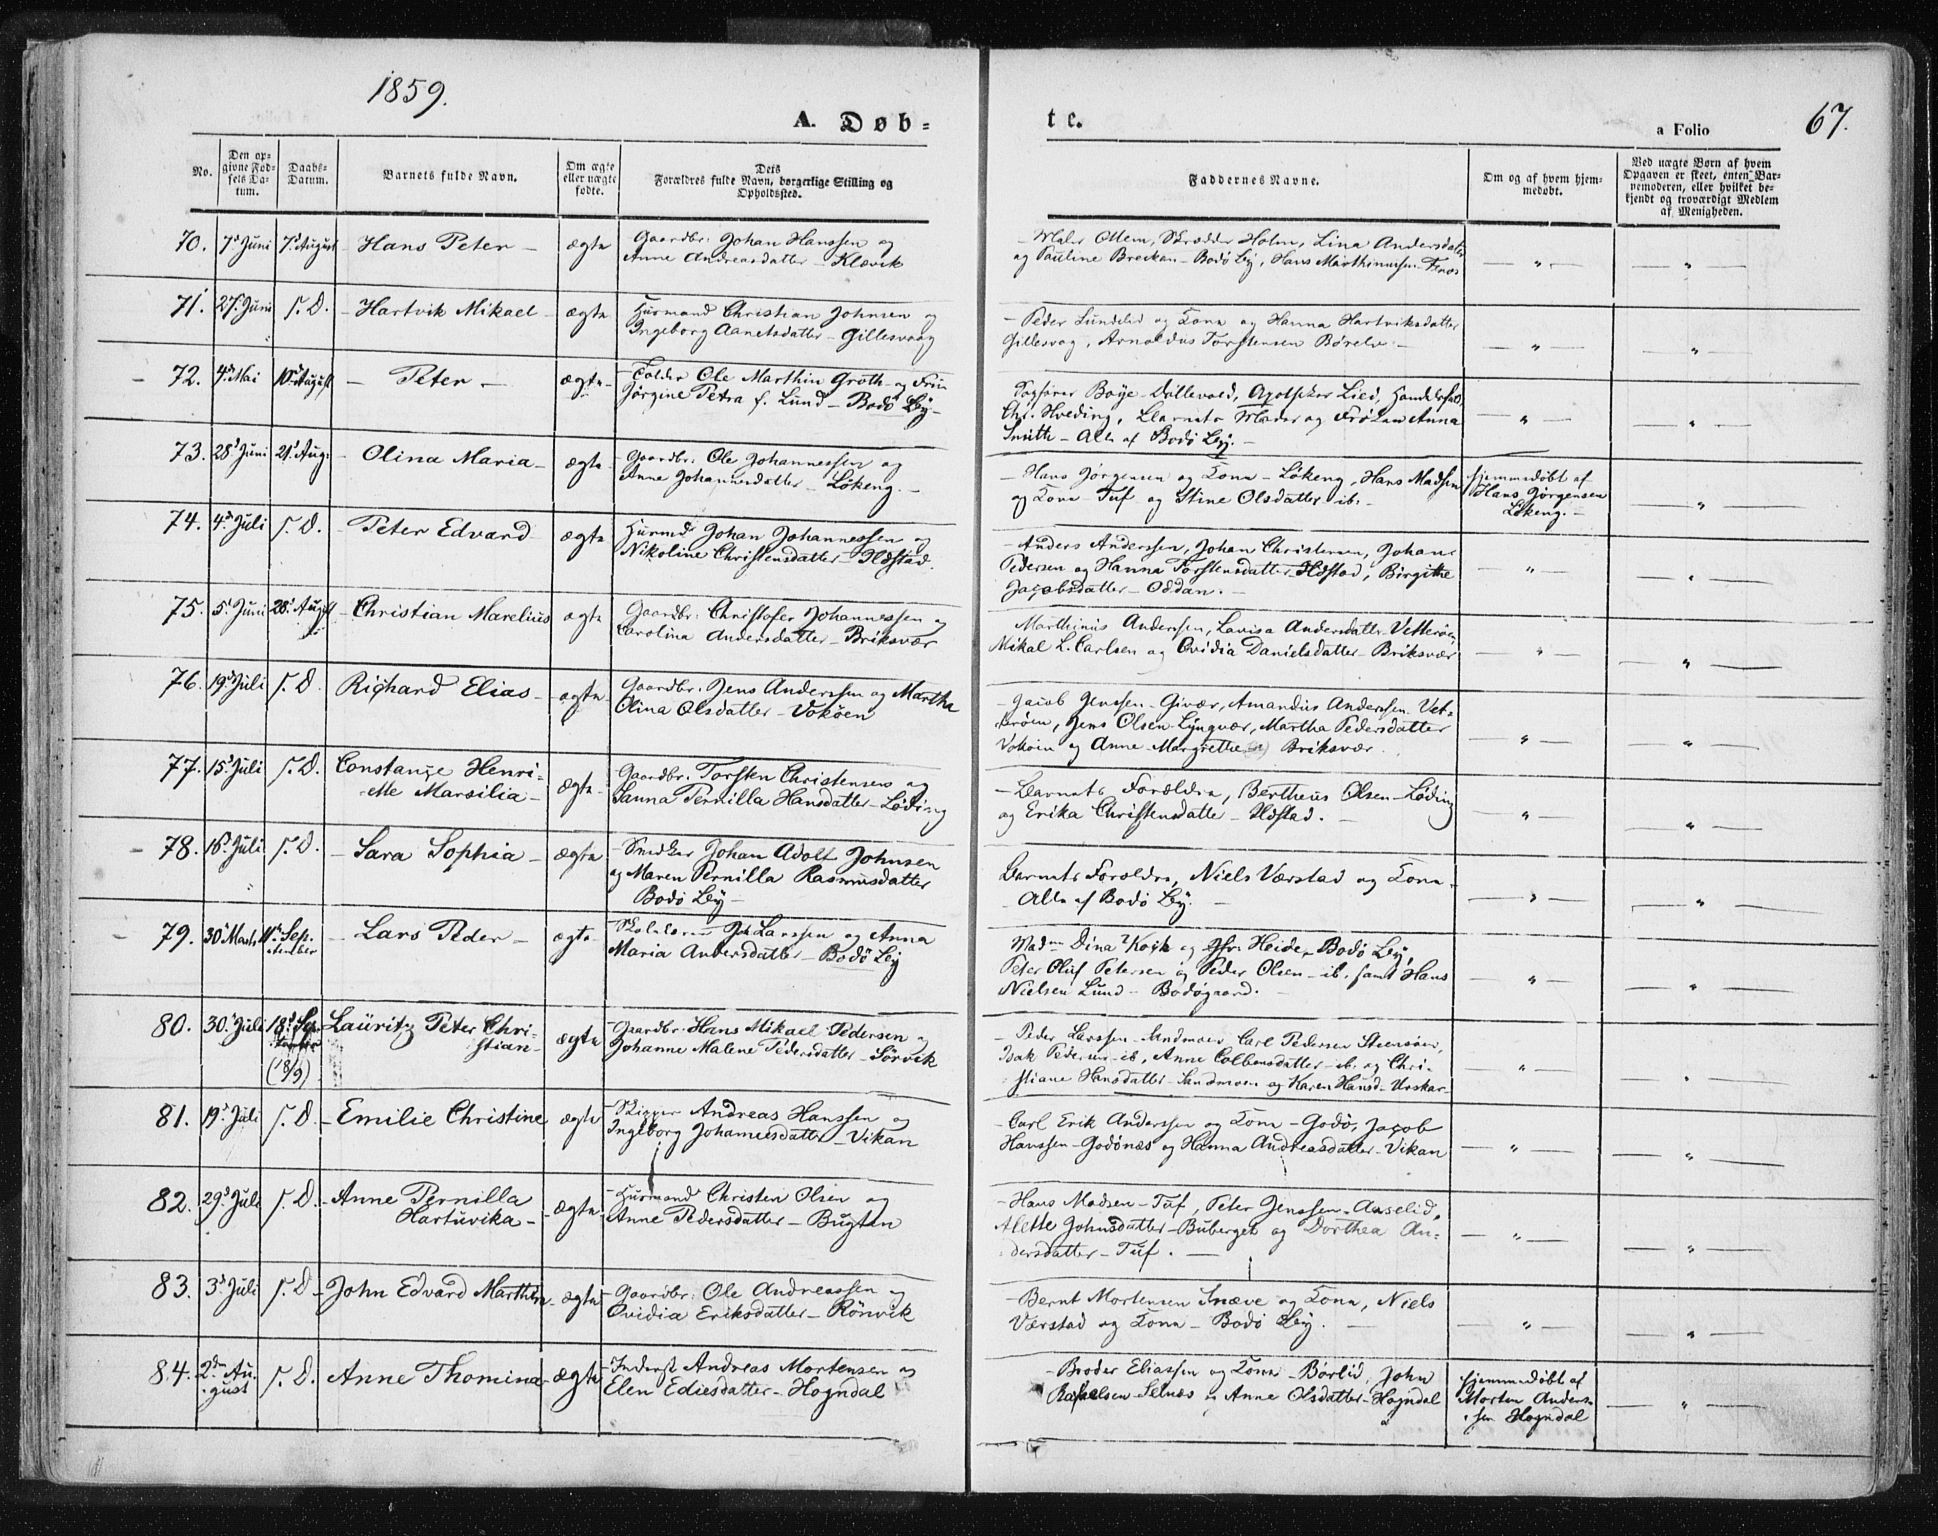 1859.
A. Døb=
te.
a Folio
67.
No.
Den op=
givne Fød=
sels Da=
tum.
Daabs=
Datum.
Barnets fulde Navn.
Om ægte
eller uægte
fødte.
Dets
Forældres fulde Navn, borgerlige Stilling og
Opholdssted.
Faddernes Navne.
Om og af hvem hjem=
medøbt.
Ved uægte Børn af hvem
Opgaven er skeet, enten Bar=
nemoderen, eller hvilket be=
kjendt og troværdigt Medlem
af Menigheden.
70. 7de Juni 7de August - Hans Peter - ægte
Gaardbr: Johan Hanssen og
Anne Andreasdatter - Klævik
- Maler Ottem, Skrædder Holm, Lina Andersdatter
og Pauline Breckan - Bodö By, Hans Marthinussen
71. 27. Juni s. D. - Hartvik Mikael - ægte
Huusmand Christian Johnsen og
Ingeborg Aanetsdatter - Gillesvaag
- Peder Lundlid og Kone og Hanna Hartviksdatter
Gillesvag, Arnoldus Torstensen Börelv -
72. 4de Mai 10de August - Peter - ægte
- Tolder Ole Marthin Groth og Fru
Jörgine Petra f. Lund - Bodö By -
Fogfører Boye Dallevold, Apotheker Lied, Handelsfuld.
Chr. Hveding, Barnets Moder og Frøken Anna
Smith - Alle af Bodö By. -
73. 28de Juni 21. Aug. - Olina Maria - ægte
- Gaardbr: Ole Johannessen og
Anne Johannesdatter - Lökeng. -
- Hans Jörgensen og Kone - Lökeng, Hans Madsen
og Kone - Tuf og Stine Olsdatter ib. -
Hjemmedöbt af
Hans Jörgensen
Lökeng. -
74. 4de Juli s. D. - Peter Edvard - ægte
Huusmd Johan Johannessen og
Nikoline Christensdatter - Ildstad.
- Anders Anderssen, Johan Christensen, Johan
Pedersen og Hanna Torstensdatter - Ildstad, Birgithe
Jacobsdatter - Oddan. -
75. 5. Juni 28. August - Christian Marelius ægte
Gaardbr: Christofer Johannessen og
Carolina Andersdatter - Briksvær
Marthinus Andersen, Lavisa Andersdatter Vetteröen
Mikal L. Carlsen og Ovidia Danielsdatter - Briksvær
76. 19de Juli s. D. Richard Elias - ægte
Gaardbr: Jens Anderssen og Martha
Olina Olsdatter - Vokøen
- Jacob Jenssen - Givær, Amandus Andersen Vet-
teröen, Jens Olsen Lyngvær, Martha Pedersdatter
Vokøen og Anne Margrethe Briksvær.
77. 15de Juli s. D. Constanze Henri-
ette Marsilia - ægte
Gaardbr: Torsten Christensen og
Sanna Pernilla Hansdatter - Löding
- Barnets Forældre, Bertheus Olsen - Löding
og Erika Christensdatter - Ildstad. -
- 78. 16. Juli s. D. - Sara Sophia - ægte
- Snedker Johan Adolf Johnsen
og Maren Pernilla Rasmusdatter
Bodö By -
Barnets Forældre, Niels Værstad og Kone -
Alle af Bodö By. -
- 79. 30de Marts 11te Sep-
tember - Lars Peder - ægte
Joh Larssen og Anna
Maria Andersdatter - Bodö By
Madm Dina Koch og Jfr. Heide, Bodö By,
Peter Oluf Petersen og Peder Olsen - ib. samt Hans
Nielsen Lund - Bodögaard. -
80. 30. Juli 18de Sep
(18/9)
Lauritz Peter Chri-
stian - ægte
Gaardbr. Hans Mikael Pedersen og
Johanne Malene Pedersdatter - Sörvik
- Peder Larssen - Sandmoen Carl Pedersen
Isak Pedersen - ib, Anne Colbensdatter - ib. og Chri-
stiane Hansdatter - Sandmoen og Karen Hansd.
81. 19de Juli s. D. - Emilie Christine ægte
- Skipper Andreas Hanssen og
Ingeborg Johannesdatter - Vikan
- Carl Erik Anderssen og Kone - Godö, Jacob
Hanssen - Godönæs og Hanna Andreasdatter - Vikan
82. 29de Juli s. D. - Anne Pernilla
Hartuvika - ægte
- Huusmand Christen Olsen og
Anne Pedersdatter - Bugten
- Hans Madsen - Tuf, Peter Jenssen - Auselid,
Alette Johnsdatter - Buberget og Dorthea An-
dersdatter - Tuf. -
83. 3de Juli s. D. - John Edvard Marthin - ægte
- Gaardbr: Ole Andreassen og
Ovidia Eriksdatter - Rönvik
- Bernt Mortensen Snæve og Kone, Niels
Værstad og Kone - Bodö By. -
84. 2den Au-
gust s. D. - Anne Thomina ægte
- Inderst Andreas Mortensen og
Elen Ediesdatter - Hogndal
- Broder Eliassen og Kone - Börlid, John
Rafaelsen - Selnæs og Anne Olsdatter - Hogndal
Hjemmedöbt af
Morten Anders-
sen Hogndal